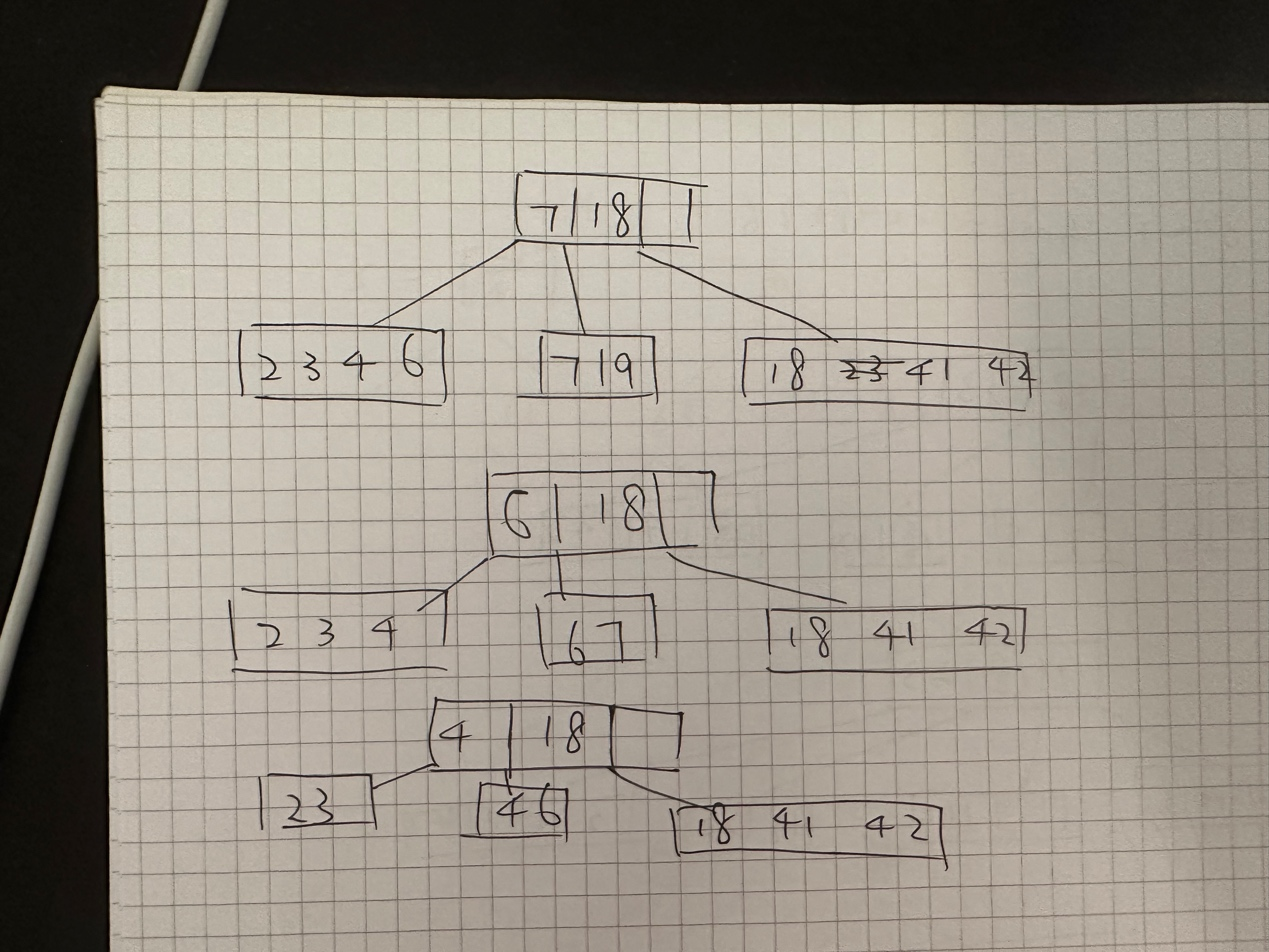 7 18
2 3 4 6 7 19 18 23 41 42
6 18
2 3 4 6 7 18 41 42
4 18
2 3 4 6 18 41 42